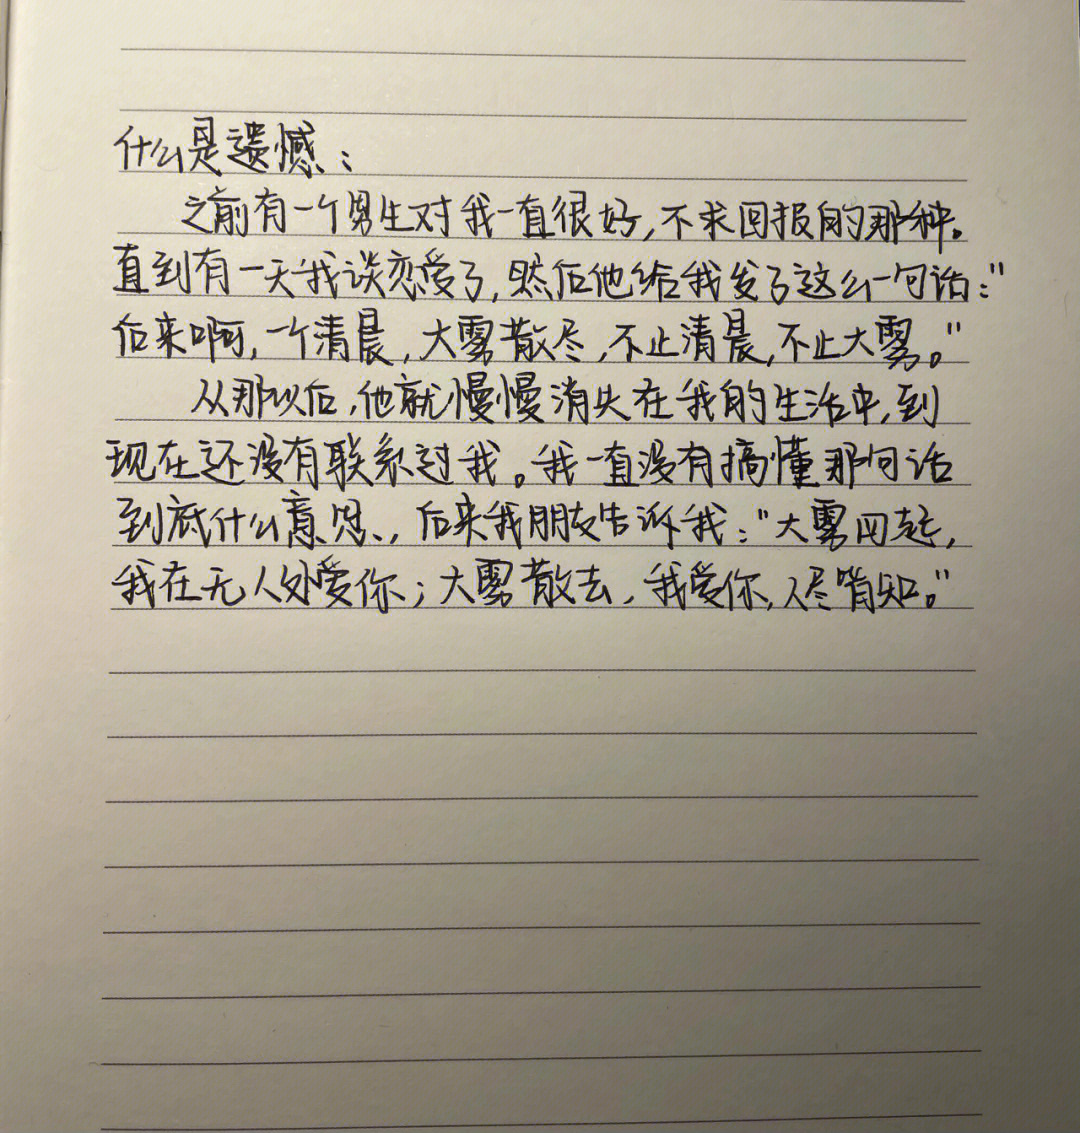 什么是遗憾：
之前有一个男生对我一直很好，不求回报的那种。
直到有一天我谈恋爱了，然后他给我发了这么一句话：“
后来啊，一个清晨，大雾散尽，不止清晨，不止大雾。”
从那以后，他就慢慢消失在我的生活中，到
现在还没有联系过我。我一直没有搞懂那句话
到底什么意思，后来我朋友告诉我：“大雾四起，
我在无人处爱你；大雾散去，我爱你，人尽皆知。”